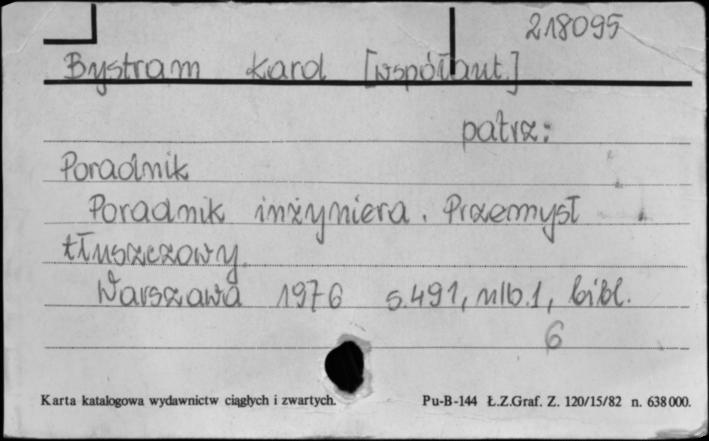 218095
Bystram Karol [współaut.]
patrz:
Poradnik
Poradnik inżyniera. Przemysł
tłuszczowy.
Warszawa 1976 s.491, nlb.1, bibl.
6
Karta katalogowa wydawnictw ciągłych i zwartych. Pu-B-144 Ł.Z.Graf. Z. 120/15/82 n. 638000.